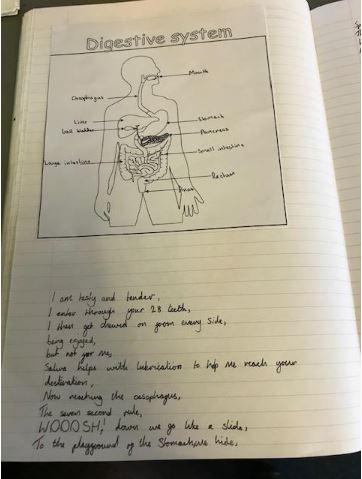 Digestive system
Mouth
Oesophagus
Liver
Gall bladder
Stomach
Pancreas
Large intestine
Small intestine
Rectum
Anus
I am tasty and tender,
I enter through your 28 teeth,
I then get chewed on from every side,
being enjoyed,
but not for me,
Saliva helps with lubrication to help me reach your
destination,
Now reaching the oesophagus,
The seven second rule,
WOOOSH! down we go like a slide,
To the playground of the Stomach we hide,